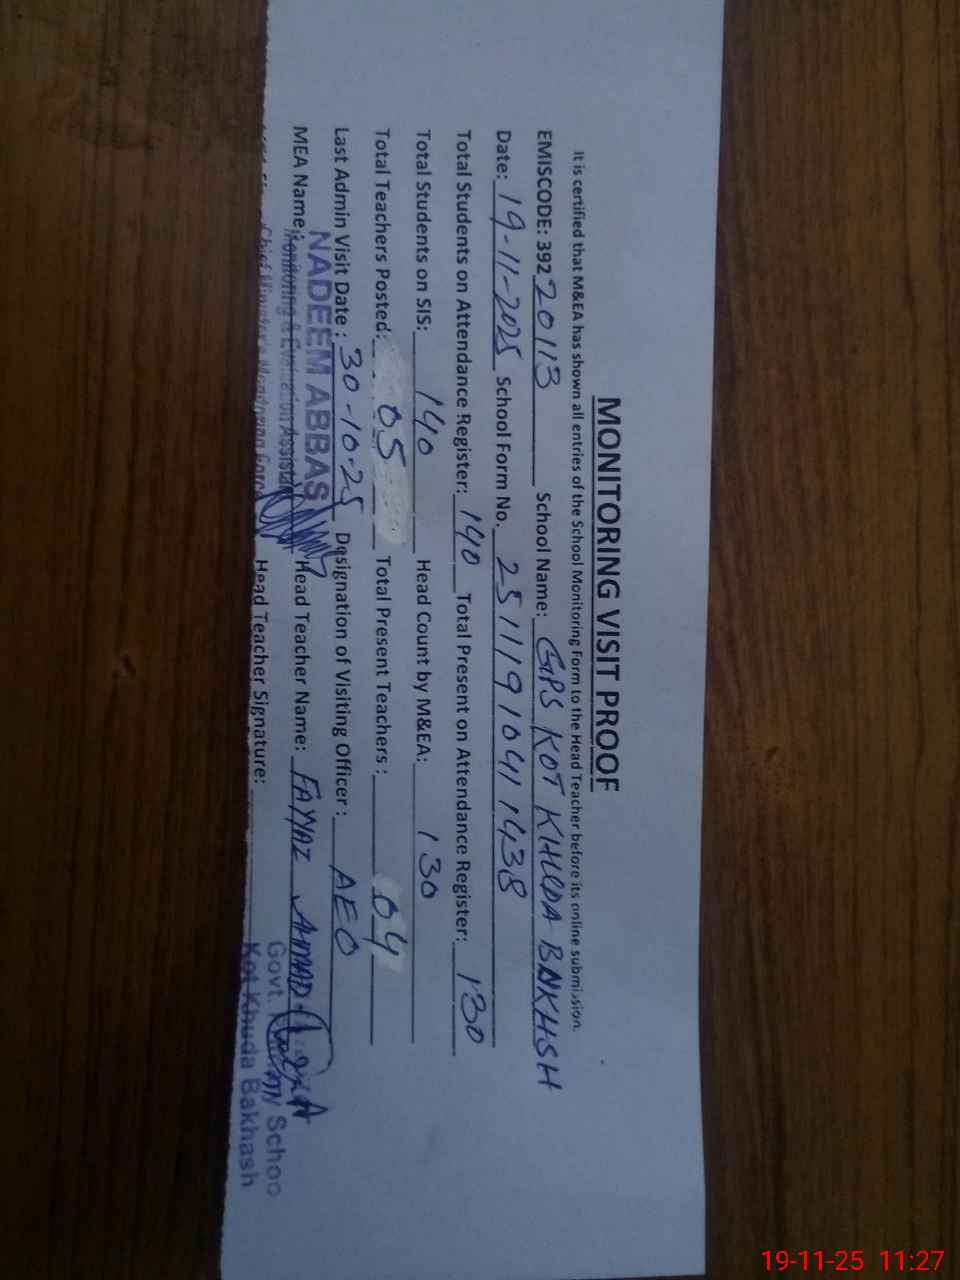 MONITORING VISIT PROOF
It is certified that M&EA has shown all entries of the School Monitoring Form to the Head Teacher before its online submission.
EMISCODE: 39220113 School Name: GPS KOT KHUDA BAKHSH
Date: 19-11-2025 School Form No. 2511191041438
Total Students on Attendance Register: 140 Total Present on Attendance Register: 130
Total Students on SIS: 140 Head Count by M&EA: 130
Total Teachers Posted: 05 Total Present Teachers: 04
Last Admin Visit Date : 30-10-25 Designation of Visiting Officer: AEO
MEA Name: NADEEM ABBAS Head Teacher Name: FAYYAZ AHMAD
Monitoring & Evaluation Assistant
Chief Minister's Monitoring Force Head Teacher Signature:
Govt. Schoo
Kot Khuda Bakhash
19-11-25 11:27